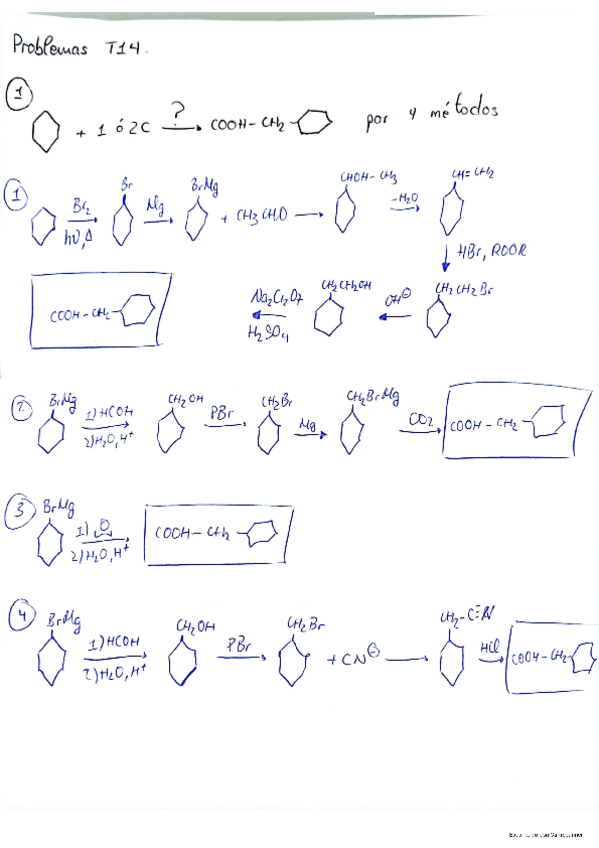 Problemas T14.
1
+ 1 ó 2C ? COOH-CH2 por 4 métodos
1
Br2 hν,Δ Br Mg BrMg + CH3CHO CHOH-CH3 -H2O CH=CH2
HBr, ROOR
COOH-CH2 Na2Cr2O7 H2SO4 CH2CH2OH OH⊖ CH2CH2Br
2
BrMg 1)HCOH 2)H2O,H+ CH2OH PBr CH2Br Mg CH2BrMg CO2 COOH-CH2
3
BrMg 1) O 2)H2O,H+ COOH-CH2
4
BrMg 1)HCOH 2)H2O,H+ CH2OH PBr CH2Br + CN⊖ CH2-C≡N HCl COOH-CH2